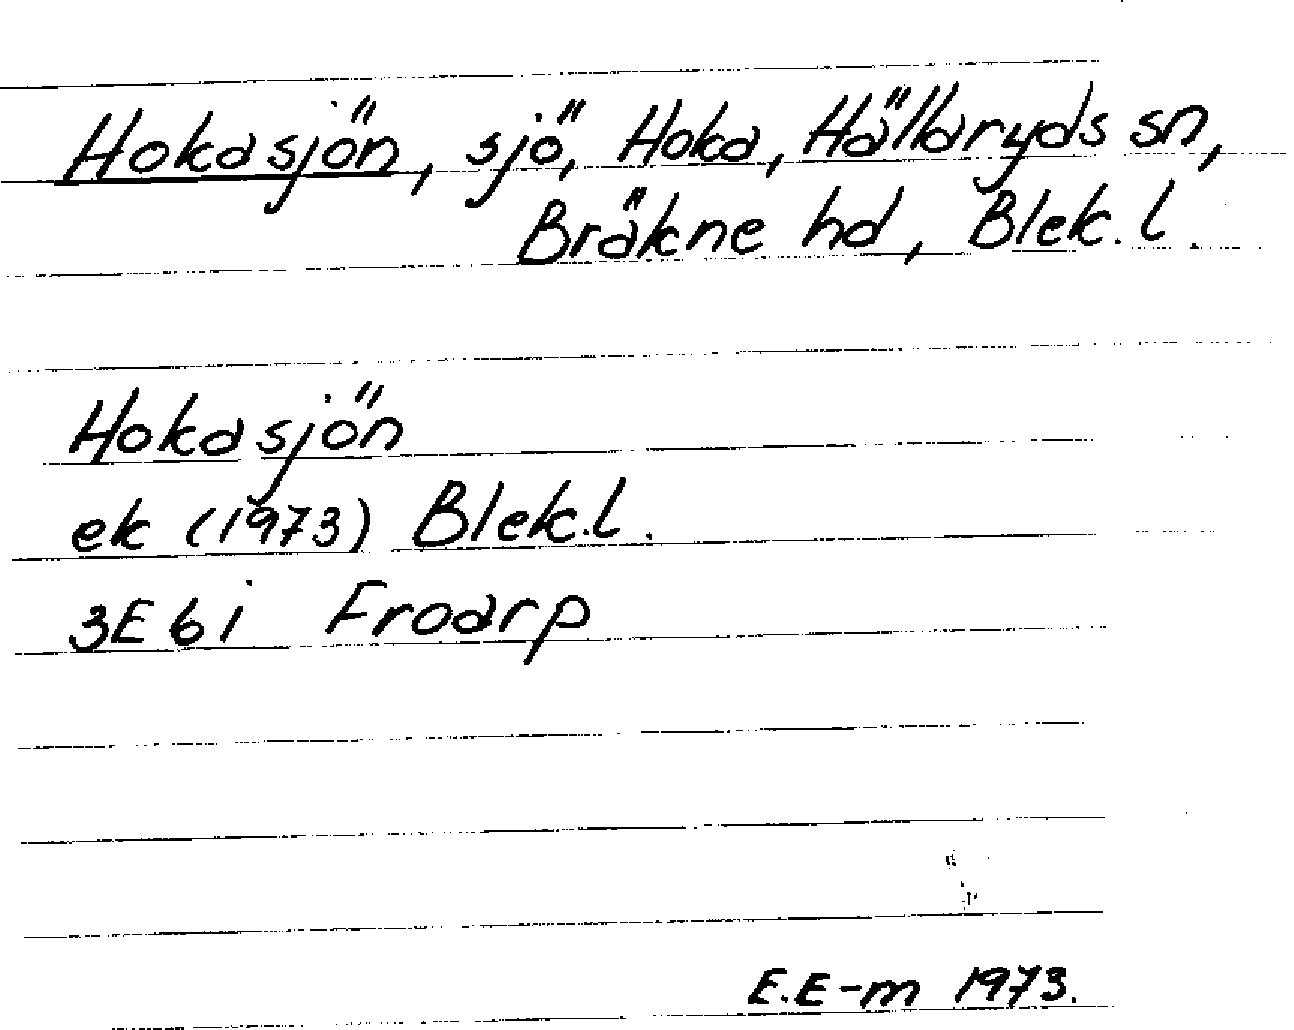 Hokasjön, sjö, Hoka, Hällaryds sn,
Bräkne hd, Blek. l.
Hokasjön
ek (1973) Blek.l.
3E 6i Froarp
E.E-m 1973.